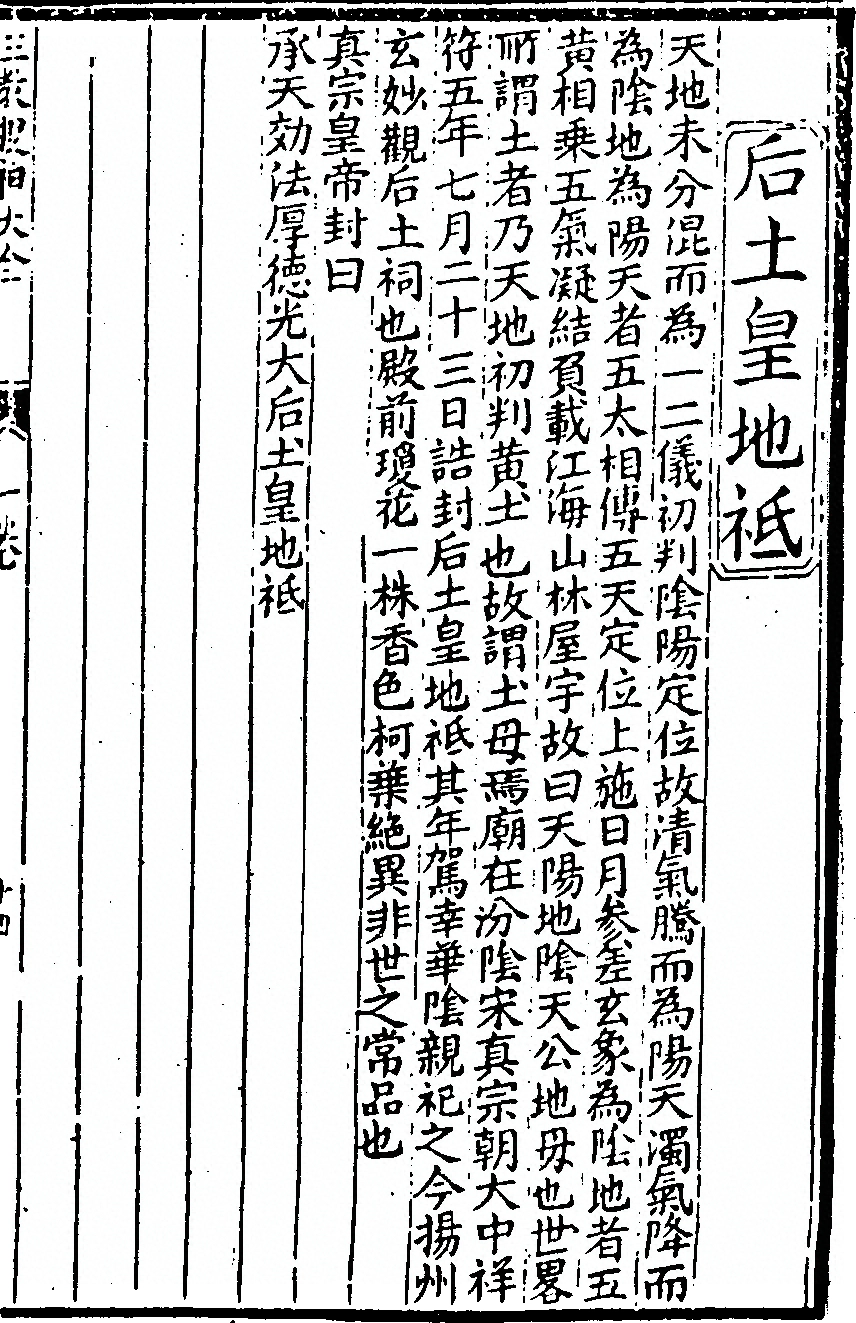 后土皇地祗
天地未分混而為一二儀初判陰陽定位故清氣騰而為陽天濁氣降而
為陰地為陽天者五太相傳五天定位上施日月參差玄象為陰地者五
黃相乗五氣凝結負載江海山林屋宇故曰天陽地陰天公地母也世畧
所謂土者乃天地初判黃土也故謂土母焉廟在汾陰宋真宗朝大中祥
符五年七月二十三日誥封后土皇地祗其年駕幸華陰親祀之今揚州
玄妙觀后土祠也殿前瓊花一株香色柯葉絶異非世之常品也
真宗皇帝封曰
承天効法厚德光大后土皇地祗
三教搜神大全
一卷
十四